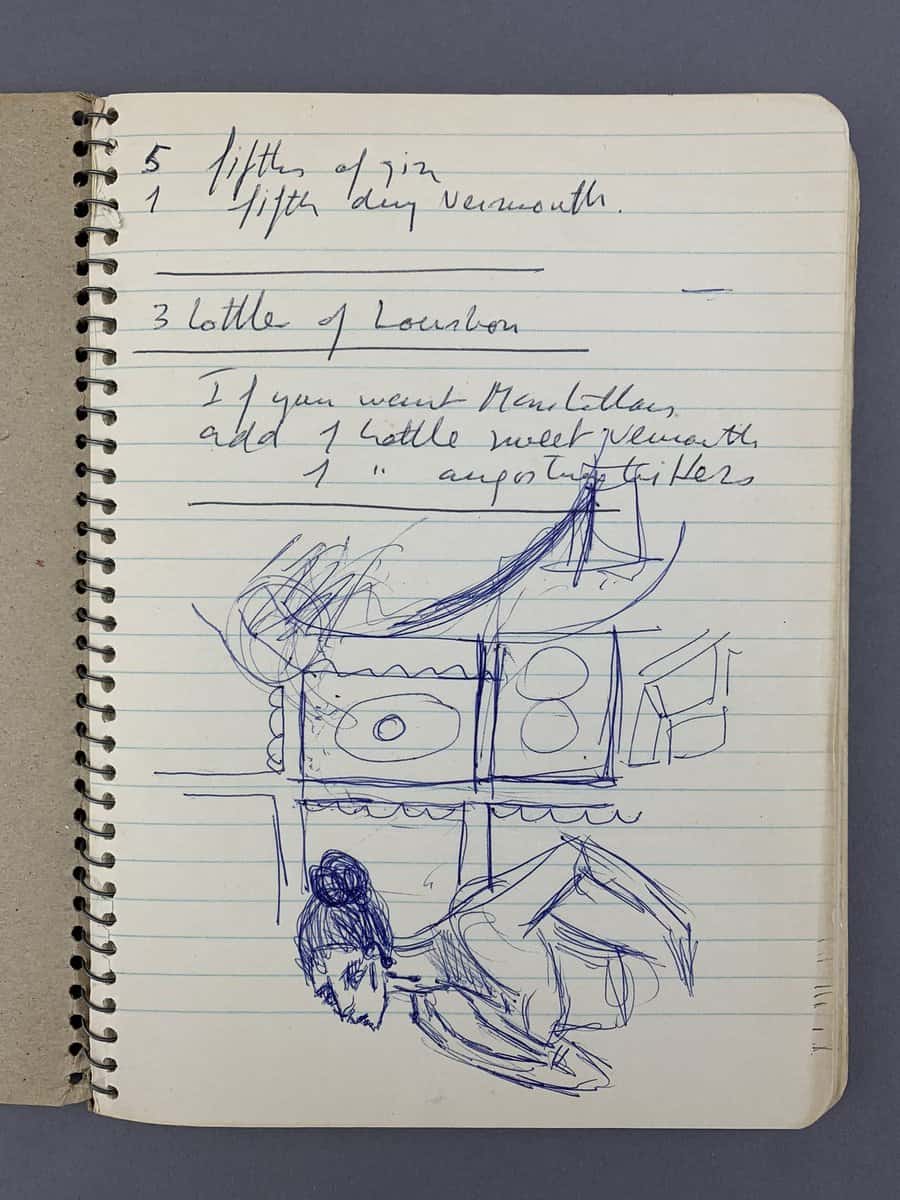 5 fifths of gin
1 fifth dry vermouth.
3 bottles of bourbon
If you want Manhattans
add 1 bottle sweet vermouth
1 " angostura bitters